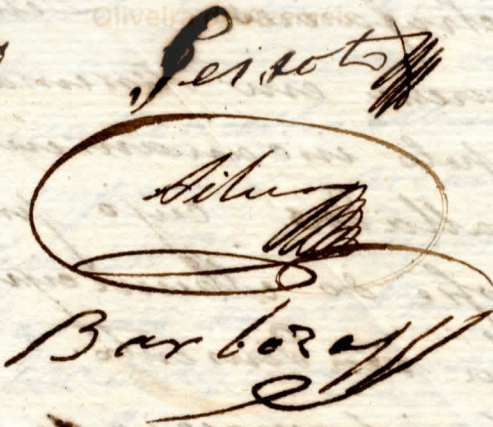 Peixoto
Silva
Barboza